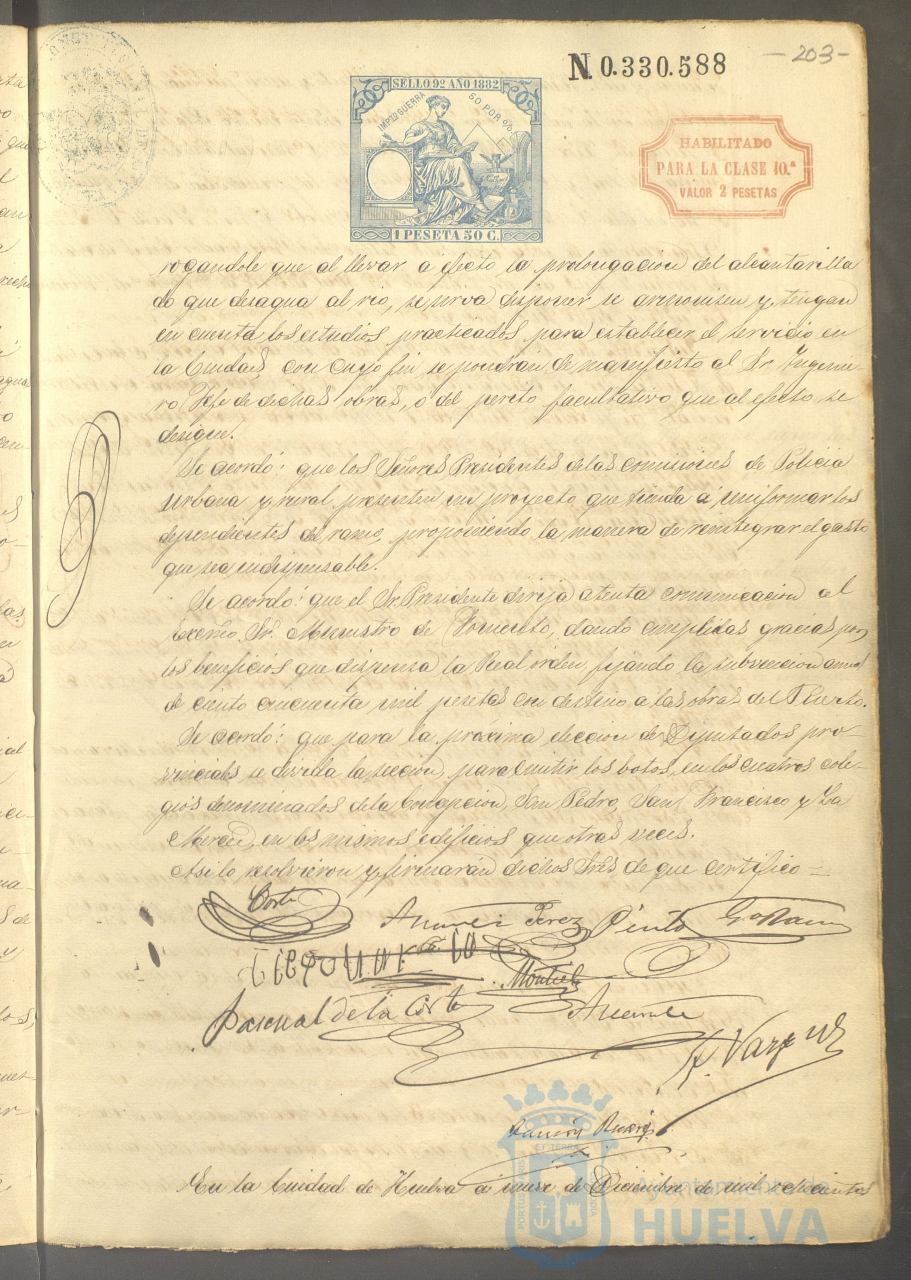 N. 0.330.588
-203-
SELLO 9º AÑO 1882
IMPTO GUERRA 50 POR 0/0
1 PESETA 50 C.
HABILITADO
PARA LA CLASE 10.ª
VALOR 2 PESETAS
rogandole que al llevar a efecto la prolongacion del alcantarilla
do que desagua al rio, se sirva disponer se armonisen y tengan
en cuenta los estudios practicados para establecer el servicio en
la Ciudad con cuyo fin se pondran de manifiesto al Sr. Ingenie-
ro Jefe de dichas obras, o del perito facultativo que al efecto se
designe.
Se acordó: que los Señores Presidentes de las comisiones de Policia
Urbana y rural presenten un proyecto que tienda á uniformar los
dependientes del ramo, proponiendo la manera de reintegrar el gasto
que sea indispensable.
Se acordó: que el Sr. Presidente dirija atenta comunicacion al
Excmo. Sr. Ministro de Fomento, dando cumplidas gracias por
los beneficios que dispensa la Real orden fijando la subvencion anual
de ciento cincuenta mil pesetas con destino a las obras del Puerto.
Se acordó: que para la próxima eleccion de Diputados pro-
vinciales se divida la seccion, para emitir los votos, en los cuatros cole-
gios denominados de la Concepcion, San Pedro, San Francisco y La
Merced, en los mismos edificios que otras veces.
Asi lo resolvieron y firmarán dichos Sres de que certifico=
Corte
Perez Pinto
Montiel
Pascual de la Corte
F. Vazquez
Ramon
En la Ciudad de Huelva a nueve de Diciembre de mil ochocientos
Ayuntamiento de
HUELVA